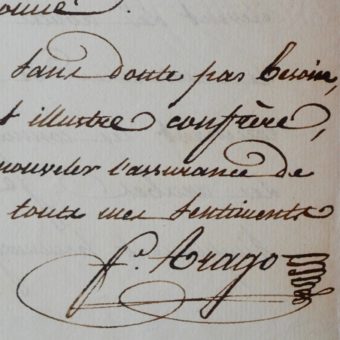 onné.
sans doute pas besoin,
t illustre confrère,
nouveler l'assurance de
touts mes sentiments
f. Arago